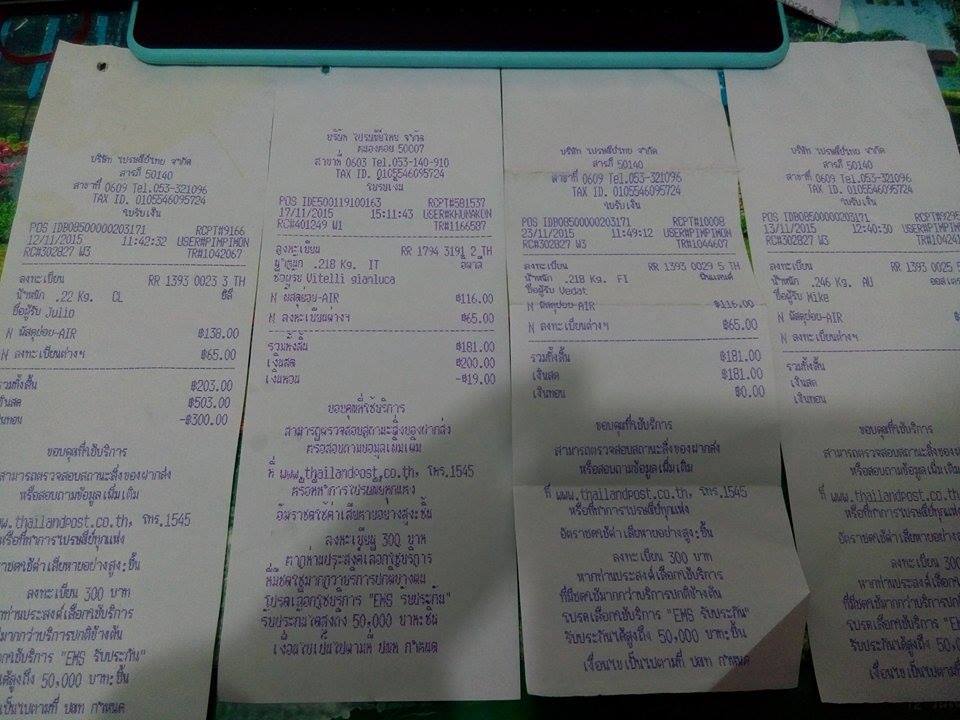 บริษัท ไปรษณีย์ไทย จำกัด
สารภี 50140
สาขาที่ 0609 Tel.053-321096
TAX ID. 0105546095724
ใบรับเงิน
POS IDB08500000203171 RCPT#9166
12/11/2015 11:42:32 USER#PIMPIMON
RC#302827 W3 TR#1042067
ลงทะเบียน RR 1393 0023 3 TH
น้ำหนัก .22 Kg. CL ชิลี
ชื่อผู้รับ Julio
N พัสดุย่อย-AIR ฿138.00
N ลงทะเบียนต่างฯ ฿65.00
รวมทั้งสิ้น ฿203.00
เงินสด ฿503.00
เงินทอน -฿300.00
ขอบคุณที่ใช้บริการ
สามารถตรวจสอบสถานะสิ่งของฝากส่ง
หรือสอบถามข้อมูลเพิ่มเติม
www.thailandpost.co.th, โทร.1545
หรือที่ทำการไปรษณีย์ทุกแห่ง
อัตราชดใช้ค่าเสียหายอย่างสูง:ชิ้น
ลงทะเบียน 300 บาท
หากท่านประสงค์เลือกใช้บริการ
ที่มีชดใช้มากกว่าบริการปกติข้างต้น
โปรดเลือกใช้บริการ "EMS รับประกัน"
รับประกันได้สูงถึง 50,000 บาท:ชิ้น
เงื่อนไขเป็นไปตามที่ ปณท กำหนด
บริษัท ไปรษณีย์ไทย จำกัด
หนองหอย 50007
สาขาที่ 0603 Tel.053-140-910
TAX ID. 0105546095724
ใบรับเงิน
POS IDE500119100163 RCPT#581537
17/11/2015 15:11:43 USER#KHUMAKON
RC#401249 W1 TR#1166587
ลงทะเบียน RR 1794 3191 2 TH
น้ำหนัก .218 Kg. IT อิตาลี
ชื่อผู้รับ Vitelli gianluca
N พัสดุย่อย-AIR ฿116.00
N ลงทะเบียนต่างฯ ฿65.00
รวมทั้งสิ้น ฿181.00
เงินสด ฿200.00
เงินทอน -฿19.00
ขอบคุณที่ใช้บริการ
สามารถตรวจสอบสถานะสิ่งของฝากส่ง
หรือสอบถามข้อมูลเพิ่มเติม
ที่ www.thailandpost.co.th, โทร.1545
หรือที่ทำการไปรษณีย์ทุกแห่ง
อัตราชดใช้ค่าเสียหายอย่างสูง:ชิ้น
ลงทะเบียน 300 บาท
หากท่านประสงค์เลือกใช้บริการ
ที่มีชดใช้มากกว่าบริการปกติข้างต้น
โปรดเลือกใช้บริการ "EMS รับประกัน"
รับประกันได้สูงถึง 50,000 บาท:ชิ้น
เงื่อนไขเป็นไปตามที่ ปณท กำหนด
บริษัท ไปรษณีย์ไทย จำกัด
สารภี 50140
สาขาที่ 0609 Tel.053-321096
TAX ID. 0105546095724
ใบรับเงิน
POS IDB08500000203171 RCPT#10008
23/11/2015 11:49:12 USER#PIMPIMON
RC#302827 W3 TR#1044607
ลงทะเบียน RR 1393 0029 5 TH
น้ำหนัก .218 Kg. FI ฟินแลนด์
ชื่อผู้รับ Vedat
N พัสดุย่อย-AIR ฿116.00
N ลงทะเบียนต่างฯ ฿65.00
รวมทั้งสิ้น ฿181.00
เงินสด ฿181.00
เงินทอน ฿0.00
ขอบคุณที่ใช้บริการ
สามารถตรวจสอบสถานะสิ่งของฝากส่ง
หรือสอบถามข้อมูลเพิ่มเติม
ที่ www.thailandpost.co.th, โทร.1545
หรือที่ทำการไปรษณีย์ทุกแห่ง
อัตราชดใช้ค่าเสียหายอย่างสูง:ชิ้น
ลงทะเบียน 300 บาท
หากท่านประสงค์เลือกใช้บริการ
ที่มีชดใช้มากกว่าบริการปกติข้างต้น
โปรดเลือกใช้บริการ "EMS รับประกัน"
รับประกันได้สูงถึง 50,000 บาท:ชิ้น
เงื่อนไขเป็นไปตามที่ ปณท กำหนด
บริษัท ไปรษณีย์ไทย จำกัด
สารภี 50140
สาขาที่ 0609 Tel.053-321096
TAX ID. 0105546095724
ใบรับเงิน
POS IDB08500000203171
13/11/2015 12:40:30 USER#PIMPI
RC#302827 W3
ลงทะเบียน RR 1393 0025
น้ำหนัก .246 Kg. AU
ชื่อผู้รับ Mike
N พัสดุย่อย-AIR
N ลงทะเบียนต่างฯ
รวมทั้งสิ้น
เงินสด
เงินทอน
ขอบคุณที่ใช้บริการ
สามารถตรวจสอบสถานะสิ่งของฝากส่ง
หรือสอบถามข้อมูลเพิ่มเติม
ที่ www.thailandpost.co.th,
หรือที่ทำการไปรษณีย์ทุกแห่ง
อัตราชดใช้ค่าเสียหายอย่าง
ลงทะเบียน 300 บาท
หากท่านประสงค์เลือกใช้
ที่มีชดใช้มากกว่าบริการปกติ
โปรดเลือกใช้บริการ "EMS
รับประกันได้สูงถึง 50,0
เงื่อนไขเป็นไปตามที่ ปณท